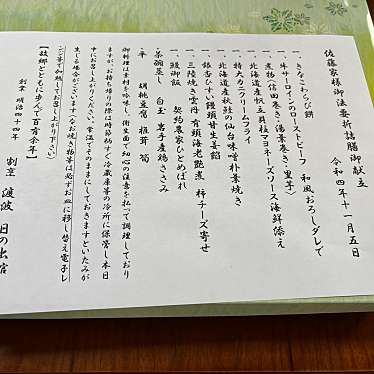 佐藤家様御法要折詰膳御献立
令和四年十一月五日
一、きなこわらび餅
一、牛サーロインのローストビーフ　和風おろしダレで
一、煮物(信田巻き・湯葉巻き・里芋)
一、北海道産帆立貝柱マヨネーズソース海鮮添え
一、特大カニクリームフライ
一、北海道産秋鮭の仙台味噌朴葉焼き
一、銀杏ひし饅頭甘生姜餡
一、三陸焼き雲丹　有頭海老艶煮　柿チーズ寄せ
一、鰻御飯　契約農家ひとめぼれ
茶碗蒸し　白玉　岩手産鶏ささみ
胡桃豆腐　椎茸　筍
御料理は素材を吟味し、衛生面で細心の注意を払って調理しており
ますが、お持ち帰りの際はすぐ冷蔵庫等の冷所に保管し、本日
中にお召し上がりください。常温でそのままにしておきますといたみが
生じる場合がございます(なお焼き物等は必ずお皿に移し替え電子レ
ンジ等で加熱してお召し上がり下さい)
【故郷とともに歩んで百有余年】
創業　明治四十四年
割烹　渡波　日の出館